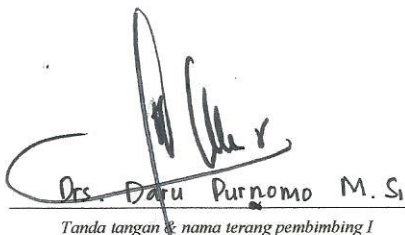 Drs. Daru Purnomo M. Si
Tanda tangan & nama terang pembimbing I